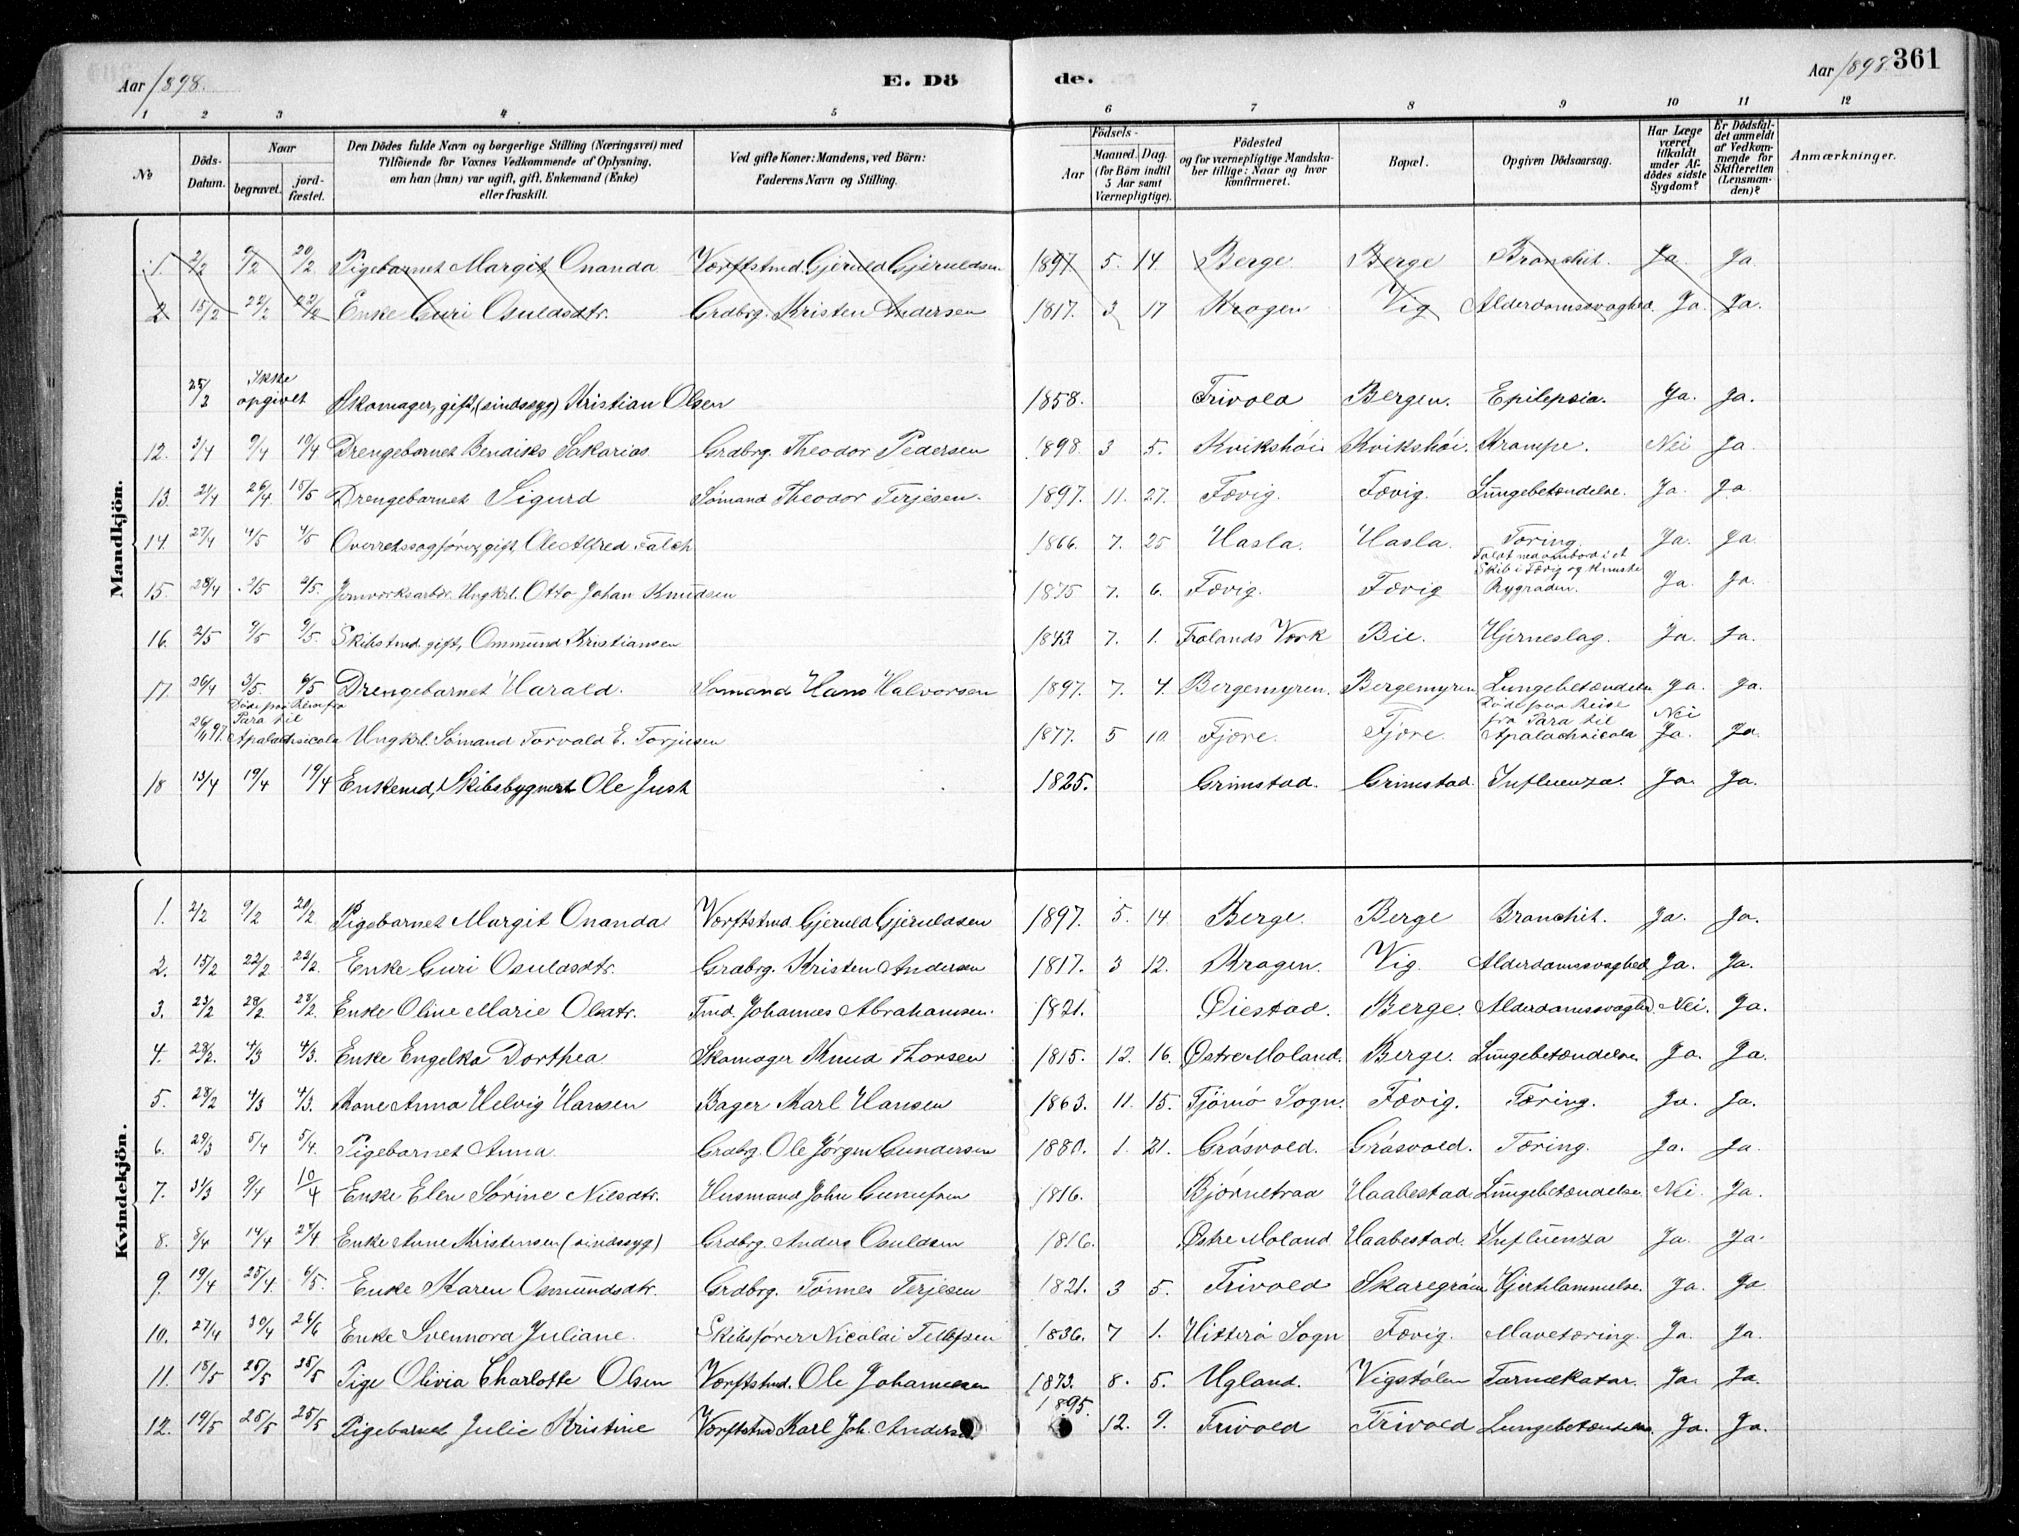 Aar 1898. E. Dö de. Aar 1898. 361
1 2 3 4 5 6 7 8 9 10 11 12
No
Döds-Datum.
Naar
begravet.
jord-fæstet.
Den Dödes fulde Navn og borgerlige Stilling (Næringsvei) med
Tilföiende for Voxnes Vedkommende af Oplysning,
om han (hun) var ugift, gift, Enkemand (Enke)
eller fraskilt.
Ved gifte Koner: Mandens, ved Börn:
Faderens Navn og Stilling.
Födsels-
Aar
Maaned. Dag.
(for Börn indtil
5 Aar samt
Værnepligtige).
Födested
og for værnepligtige Mandska-
ber tillige: Naar og hvor
konfirmeret.
Bopæl.
Opgiven Dödsaarsag.
Har Læge
været
tilkaldt
under Af-
dödes sidste
Sygdom?
Er Dödsfal-
det anmeldt
af Vedkom-
mende for
Skifteretten
(Lensman-
den)?
Anmærkninger.
Mandkjön.
1. 2/2 9/2 20/2 Pigebarnet Margit Onanda Værftstmd. Gjeruld Gjeruldsen 1897 5. 14. Berge. Berge Bronchit. Ja. Ja.
2 15/2 22/2 22/2 Enke Guri Osuldsdtr. Grdbrg. Kristen Andersen 1817. 3 17 Kragen Vig Alderdomssvaghed. Ja. Ja.
25/3 Ikke opgivet Skomager, gift, (sindssyg) Kristian Olsen 1858. Frivold Bergen. Epilepsia. Ja. Ja.
12. 3/4 9/4 10/4 Drengebarnet Bendiks Sakarias Grdbrg. Theodor Pedersen 1898 3 5. Kvikshöi Kvikshöi. Krampe. Nei Ja.
13. 21/4 26/4 15/5 Drengebarnet Sigurd Sömand Theodor Terjesen. 1897. 11. 27. Fævig. Fævig. Lungebetændelse. Ja. Ja
14. 27/4 4/5 4/5 Overretssagförer, gift, Ole Alfred Falch 1866. 7. 25 Hasla. Hasla. Tæring. Ja. Ja.
15. 28/4 2/5 2/5. Jernværksarbdr. Ungkrl. Otto Johan Knudsen 1875 7. 6. Fævig. Fævig Faldt ned ombord i et
Skib i Fævig og knuste
Rygraden. Ja. Ja.
16. 2/5 9/5 9/5. Skibstmd. gift, Osmund Kristiansen 1843 7. 1. Frolands Værk Bie. Hjerneslag. Ja. Ja.
17. 26/4 3/5. 6/5 Drengebarnet Harald. Sømand Hans Halvorsen 1897. 7. 4. Bergemyren. Bergemyren Lungebetændelse Ja. Ja.
26/11 97. Døde paa Reise fra
Para til
Apalachicola Ungkrl. Sömand Torvald E. Torjusen 1877. 5 10. Fjære. Fjære. Døde paa Reise
fra Para til
Apalachicola Nei Ja. Ja.
18 13/4 19/4 19/4 Enkemd, Skibsbygmest. Ole Just 1825. Grimstad. Grimstad. Influenza. Ja. Ja.
Kvindekjön.
1. 2/2 9/2 20/2 Pigebarnet Margit Onanda Værftstmd. Gjeruld Gjeruldsen 1897. 5. 14. Berge. Berge Bronchit. Ja. Ja.
2. 15/2 22/2 22/2. Enke Guri Osuldsdtr. Grdbrg. Kristen Andersen 1817. 3 12. Kragen. Vig. Alderdomssvaghed Ja. Ja.
3. 23/2 28/2 28/2. Enke Oline Marie Olsdtr. Tmd. Johannes Abrahamsen. 1821. Øiestad. Berge. Alderdomssvaghed. Nei. Ja.
4. 28/2. 4/3 4/3. Enke Engelka Dorthea Skomager Knud Thorsen 1815. 12. 16. Østre Moland. Berge. Lungebetændelse Ja. Ja.
5. 28/2 4/3 4/3. Kone Anna Helvig Hansen Bager Karl Hansen 1863. 11. 15. Tjömö Sogn. Fævig. Tæring. Ja. Ja.
6. 29/3 5/4 5/4. Pigebarnet Anna. Grdbrg. Ole Jörgen Gundersen 1880. 1. 21. Gråsvold. Gråsvold. Tæring. Ja. Ja.
7. 31/3 9/4 10/4 Enke Elen Sörine Nilsdtr. Husmand John 1816. Bjørnetrad Haabestad Lungebetændelse Nei. Ja.
8. 8/4 14/4 24/4 Enke Anne Kristensen (sindssyg) Grdbrg. Anders Osuldsen 1816. Østre Moland Haabestad. Influenza Ja. Ja.
9. 19/4 25/4. 6/5. Enke Karen Osmundsdtr. Grdbrg. Tönnes Terjesen 1821. 3 5. Frivold Skaregröm Hjertelammelse. Ja. Ja
10. 27/4 30/4 26/6 Enke Svennora Juliane. Skibsförer Nicolai Tellefsen 1836. 7 1. Hitterö Sogn Fævig. Mavetæring. Ja. Ja.
11. 18/5 25/5 25/5 Pige Olivia Charlotte Olsen Værftstmd. Ole Johannesen 1873. 8. 5. Ugland. Vigstölen Tarmekatar. Ja. Ja.
12. 19/5 25/5 25/5 Pigebarnet Julie Kristine Værftstmd Karl Joh. Andersen 1895. 12. 9. Frivold Frivold Lungebetændelse Ja. Ja.